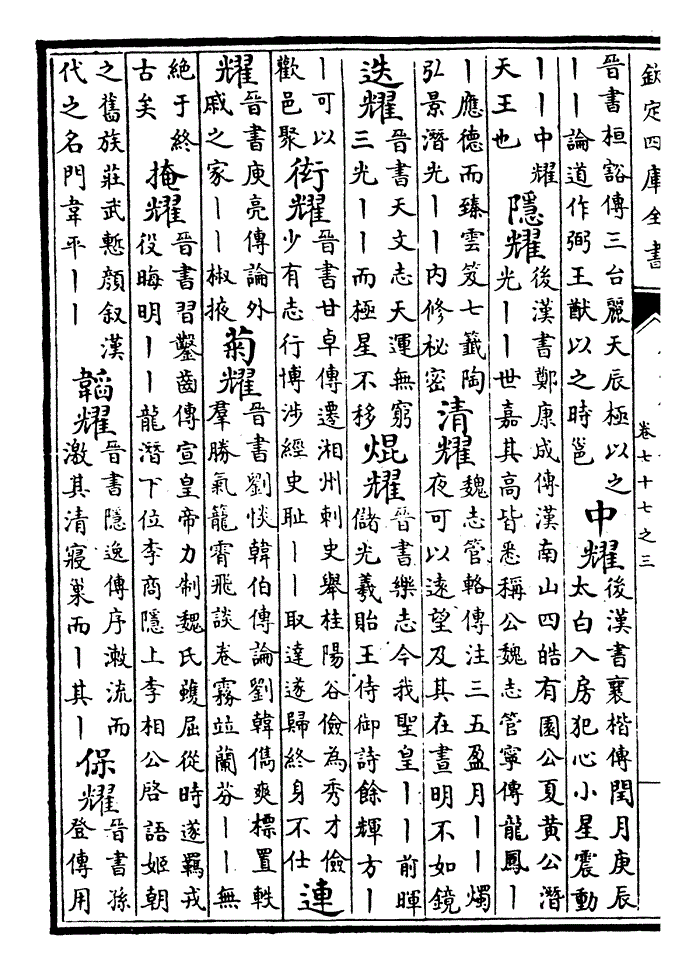 欽定四庫全書 卷七十七之三
晉書桓豁傳三台麗天辰極以之
丨丨論道作弼王猷以之時邕
中耀
後漢書襄楷傳閏月庚辰
太白入房犯心小星震動
丨丨中耀
天王也
隱耀
後漢書鄭康成傳漢南山四皓有園公夏黃公潛
光丨丨世嘉其高皆悉稱公魏志管寧傳龍鳳丨
丨應德而臻雲笈七籤陶
弘景潛光丨丨內修祕密
清耀
魏志管輅傳注三五盈月丨丨燭
夜可以遠望及其在晝明不如鏡
迭耀
晉書天文志天運無窮
三光丨丨而極星不移
焜耀
晉書樂志今我聖皇丨丨前暉
儲光羲貽王侍御詩餘輝方丨
丨可以
歡邑聚
衒耀
晉書甘卓傳遷湘州刺史舉桂陽谷儉為秀才儉
少有志行博涉經史耻丨丨取達遂歸終身不仕
連
耀
晉書庾亮傳論外
戚之家丨丨椒掖
菊耀
晉書劉惔韓伯傳論劉韓儁爽標置軼
羣勝氣籠霄飛談卷霧竝蘭芬丨丨無
絶于終
古矣
掩耀
晉書習鑿齒傳宣皇帝力制魏氏蠖屈從時遂羈戎
役晦明丨丨龍潛下位李商隱上李相公啓語姬朝
之舊族莊武慙顏叙漢
代之名門韋平丨丨
韜耀
晉書隱逸傳序漱流而
激其清寢巢而丨其丨
保耀
晉書孫
登傳用